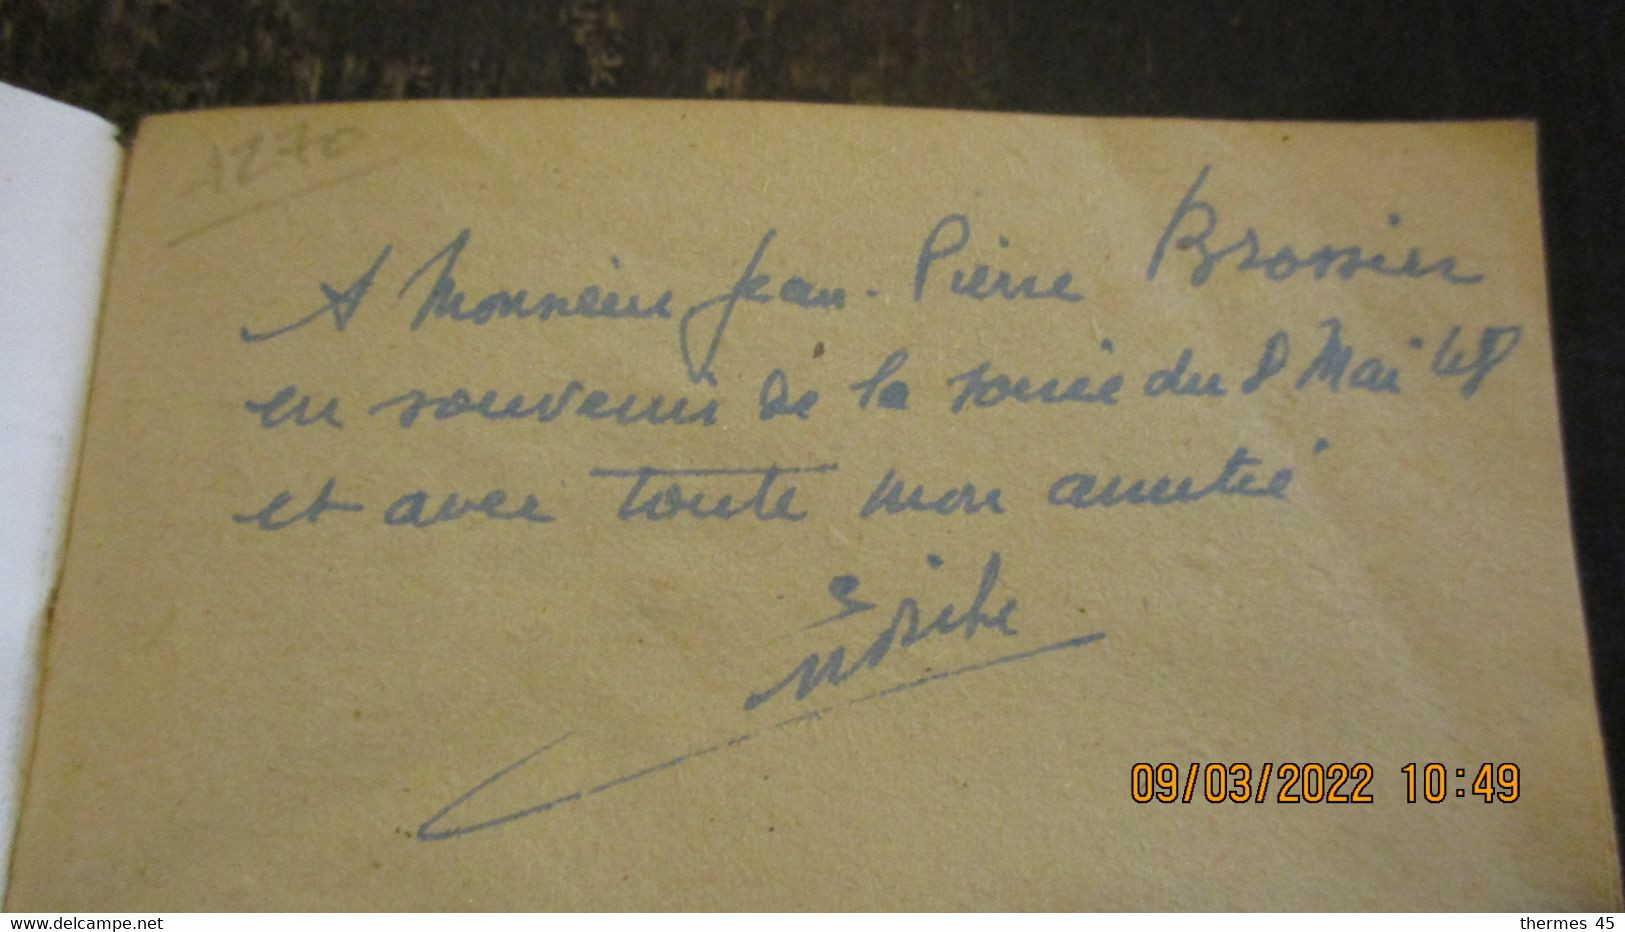 1270
A Monsieur Jean-Pierre Brossier
en souvenir de la soirée du 8 Mai 48
et avec toute mon amitié
09/03/2022 10:49
www.delcampe.net
thermes 45